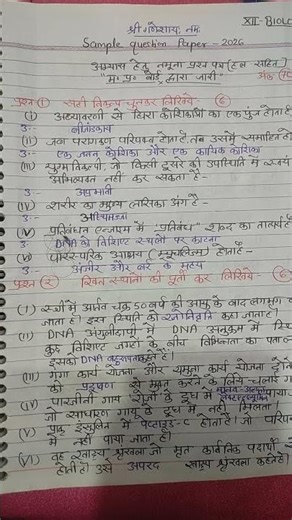 श्री गणेशाय नमः
XII - BIOLO
Sample question Paper - 2026
अभ्यास हेतु नमूना प्रश्न पत्र (हल सहित)
"म. प्र. बोर्ड द्वारा जारी" अंक (70
प्रश्न (1) सही विकल्प चुनकर लिखिये - (6)
(i) अध्यावरणी से घिरा कोशिकाओं का एक पुंज होता है
उ:- बीजांडकाय
(ii) जब परागकण परिपक्व होता है, तब उसमें समाहित होती
उ:- एक जनन कोशिका और एक कायिक कोशिका
(iii) युग्मविकल्पी, जो किसी दूसरे की उपस्थिति में स्वयं
अभिव्यक्त नहीं कर सकता है -
उ:- अप्रभावी
(IV) शरीर का मुख्य लसिका अंग है -
उ:- अस्थिमज्जा
(V) प्रतिबंधन एन्जाइम में "प्रतिबंध" शब्द का तात्पर्य है
उ:- DNA को विशिष्ट स्थलों पर काटना
(VI) पारस्परिक आश्रय (म्युचुलिज्म) होता है -
उ:- अंजीर और बर्र के मध्य
प्रश्न (2) रिक्त स्थानों की पूर्ती कर लिखिये - (6)
(I) स्त्री में आर्तव चक्र 50 वर्ष की आयु के बाद लगभग
जाता है। इस स्थिति को रजोनिवृत्ति कहा जाता है।
(II) DNA अंगुलीछापी में DNA अनुक्रम में स्थि
कुछ विशिष्ट जगहों के बीच विभिन्नता का पता
इसको DNA बहुरूपता कहते हैं।
(III) गंगा कार्य योजना और यमुना कार्य योजना दोनों
को प्रदूषण से मुक्त करने के लिये चलाई
(IV) पारजीनी गाय रोजी के दूध में पाया
जो साधारण गाय के दूध में नहीं मिलता।
(V) प्राक् इंसुलिन में पेप्टाइड-C होता है। जो परिपक्व
में नहीं पाया जाता है।
(VI) वह खाद्य श्रृंखला जो मृत कार्बनिक पदार्थों से
होती हो उसे अपरद खाद्य श्रृंखला कहते हैं।